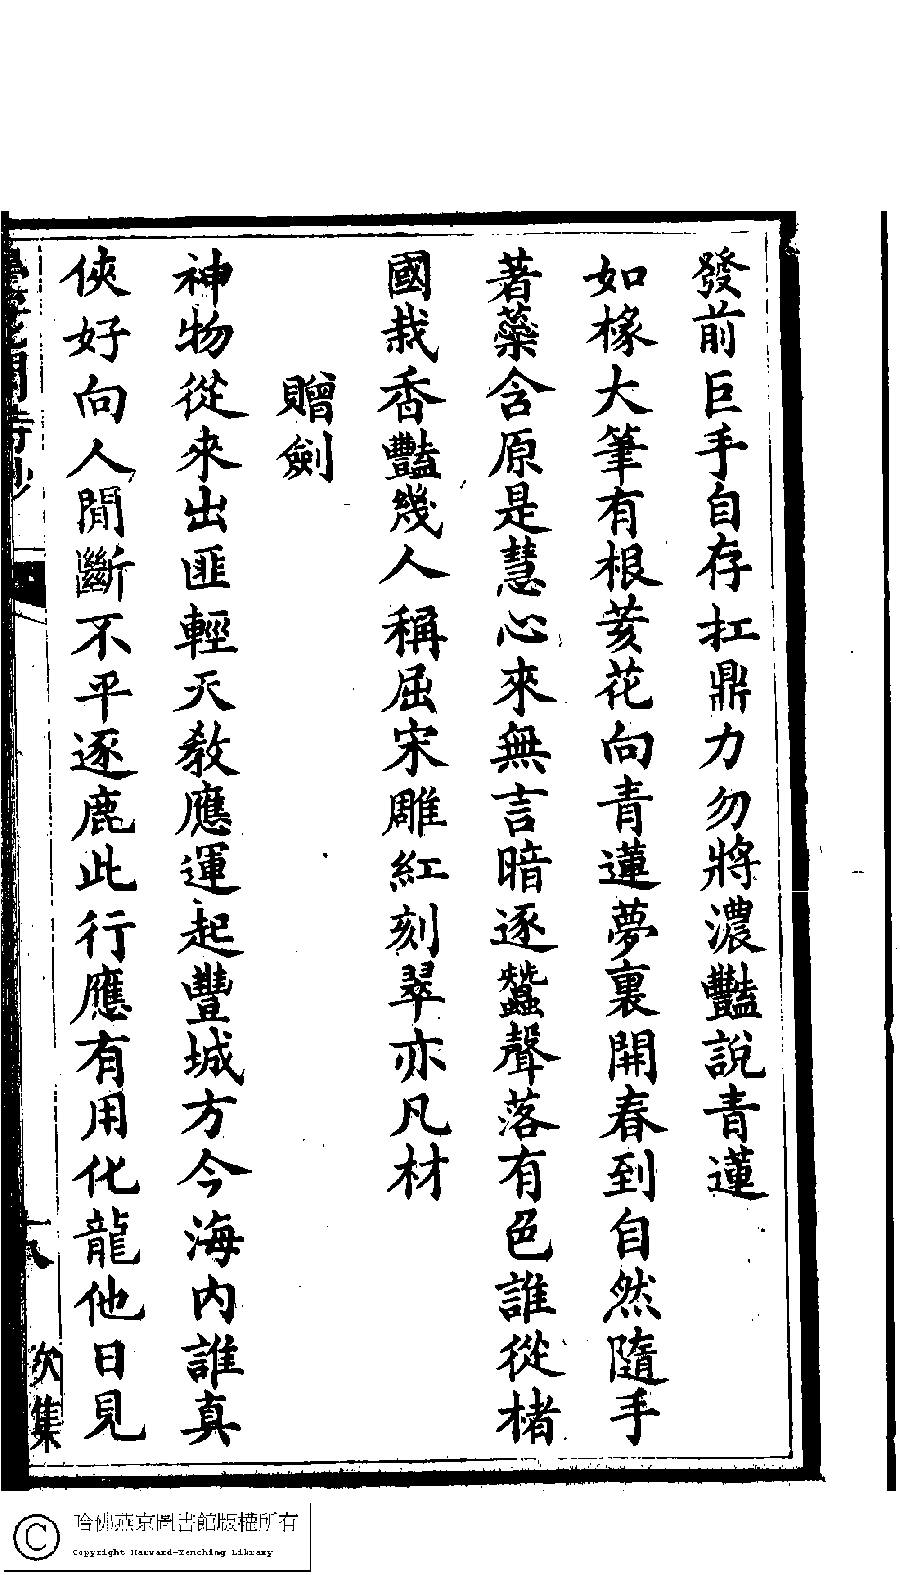 發前巨手自存扛鼎力勿將濃豔說青蓮
如椽大筆有根荄花向青蓮夢裏開春到自然隨手
著蘂含原是慧心來無言暗逐蠶聲落有色誰從楮
國栽香豔幾人稱屈宋雕紅刻翠亦凡材
贈劍
神物從來出匪輕天教應運起豐城方今海內誰真
俠好向人間斷不平逐鹿此行應有用化龍他日見
次集
哈佛燕京圖書館版權所有
Copyright Harvard-Yenching Library